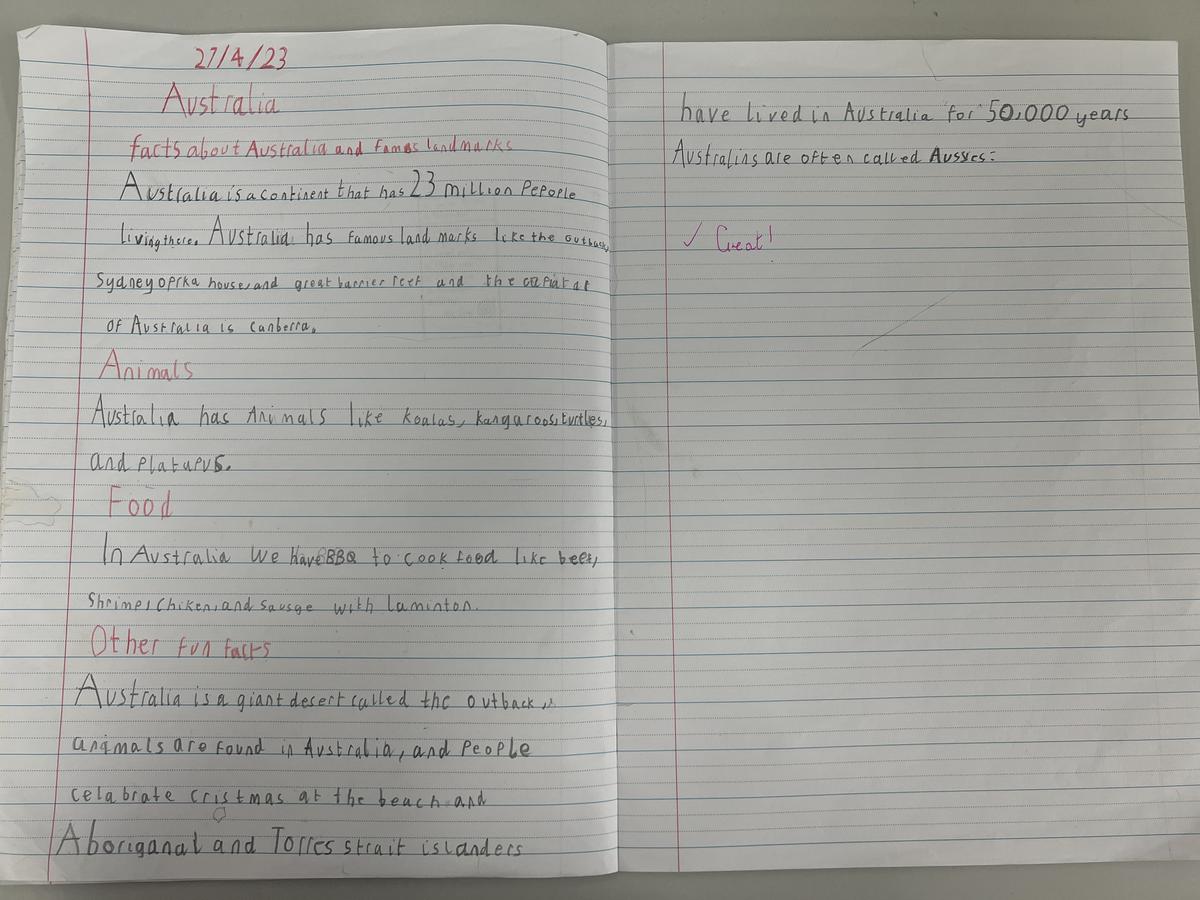 27/4/23
Australia
facts about Australia and famos landmarks
Australia is a continent that has 23 million Pepople
living there. Australia has famous land marks like the outback,
Sydney oprka house, and great barrier reef and the
of Australia is Canberra.
Animals
Australia has Animals like koalas, kangaroos, turtles,
and Platupus.
Food
In Australia We have BBQ to cook food like beef,
Shrimp, Chiken, and Sausge with laminton.
Other fun facts
Australia is a giant desert called the outback
animals are found in Australia, and People
celabrate cristmas at the beach and
Aboriganal and Torres strait islanders
have lived in Australia for 50,000 years
Australins are often called Aussies.
✓ Great!